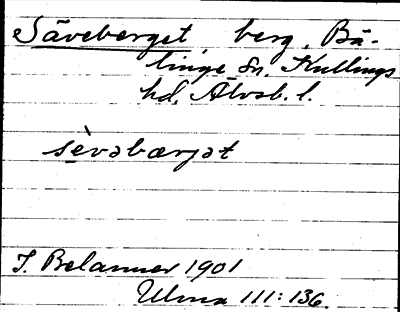 Säveberget, berg, Bä-
linge sn. Kullings
hd, Älvsb. l.
sèvəbærjət
J. Belanner 1901
Ulma 111:136.